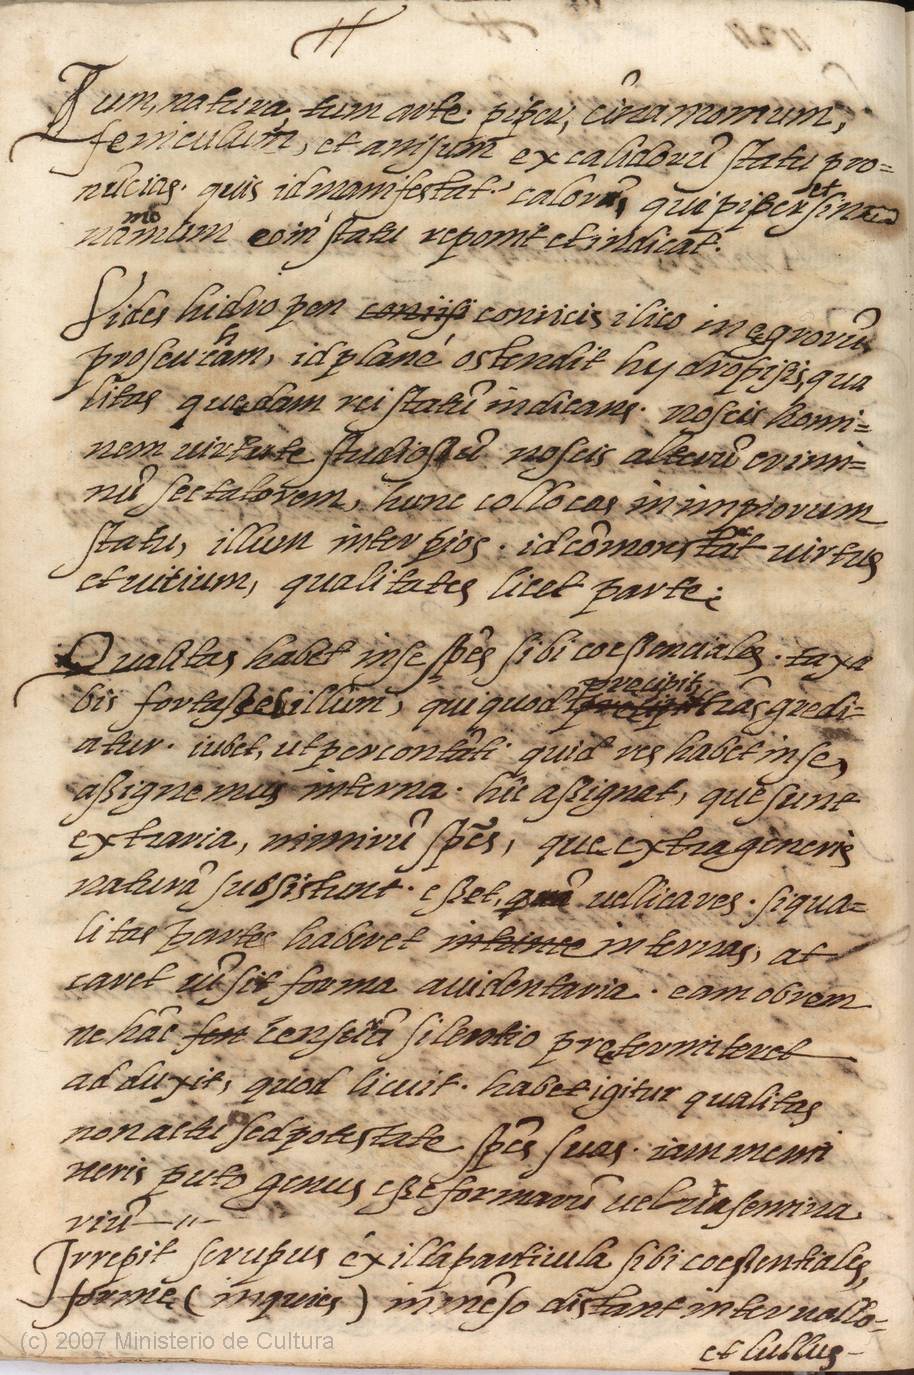 Tum, natura, tum arte. piper, cinamomum,
feniculum, et anisum ex calidorũ statu pro=
nũcias. quis id manifestat? calorũ, qui piper et sina
momum eoin statu reponit et indicat.
Vides hidropen coniisi coniicis ilico in egrorũ
proseucham, id plané ostendit hydropisis, qua
litas quedam rei statũ indicans. noscis homi=
nem virtute studiosũ noscis alterũ crimi=
nũ sectatorem, hunc collocas in impiorum
statu, illum inter pios. id cõmonstrat virtus
et vitium, qualitates licet parte;
Qualitas habet in se spẽs sibi coessenciales. taxa
bis fortasse illum, qui quod precipit trãsgredi=
atur. iubet, ut percontãti quid res habet in se,
assignemus interna. hic assignat, que sunt
extraria, nimirũ spẽs, que extra generis
naturã subsistunt. esset, quã vellicares. si qua=
litas partes haberet internas, at
caret cũ sit forma accidentaria. eam obrem
ne hãc censurã silentio pretermiteret
adduxit, quod licuit. habet igitur qualitas
non actu sed potestate spẽs suas. iam memi
neris puto genus esse formarũ velut semina
riũ
Irrepit scrupus éx illa particula sibi coessentiales,
forme (inquies) inmẽso distant intervallo=
et lullus
(c) 2007 Ministerio de Cultura